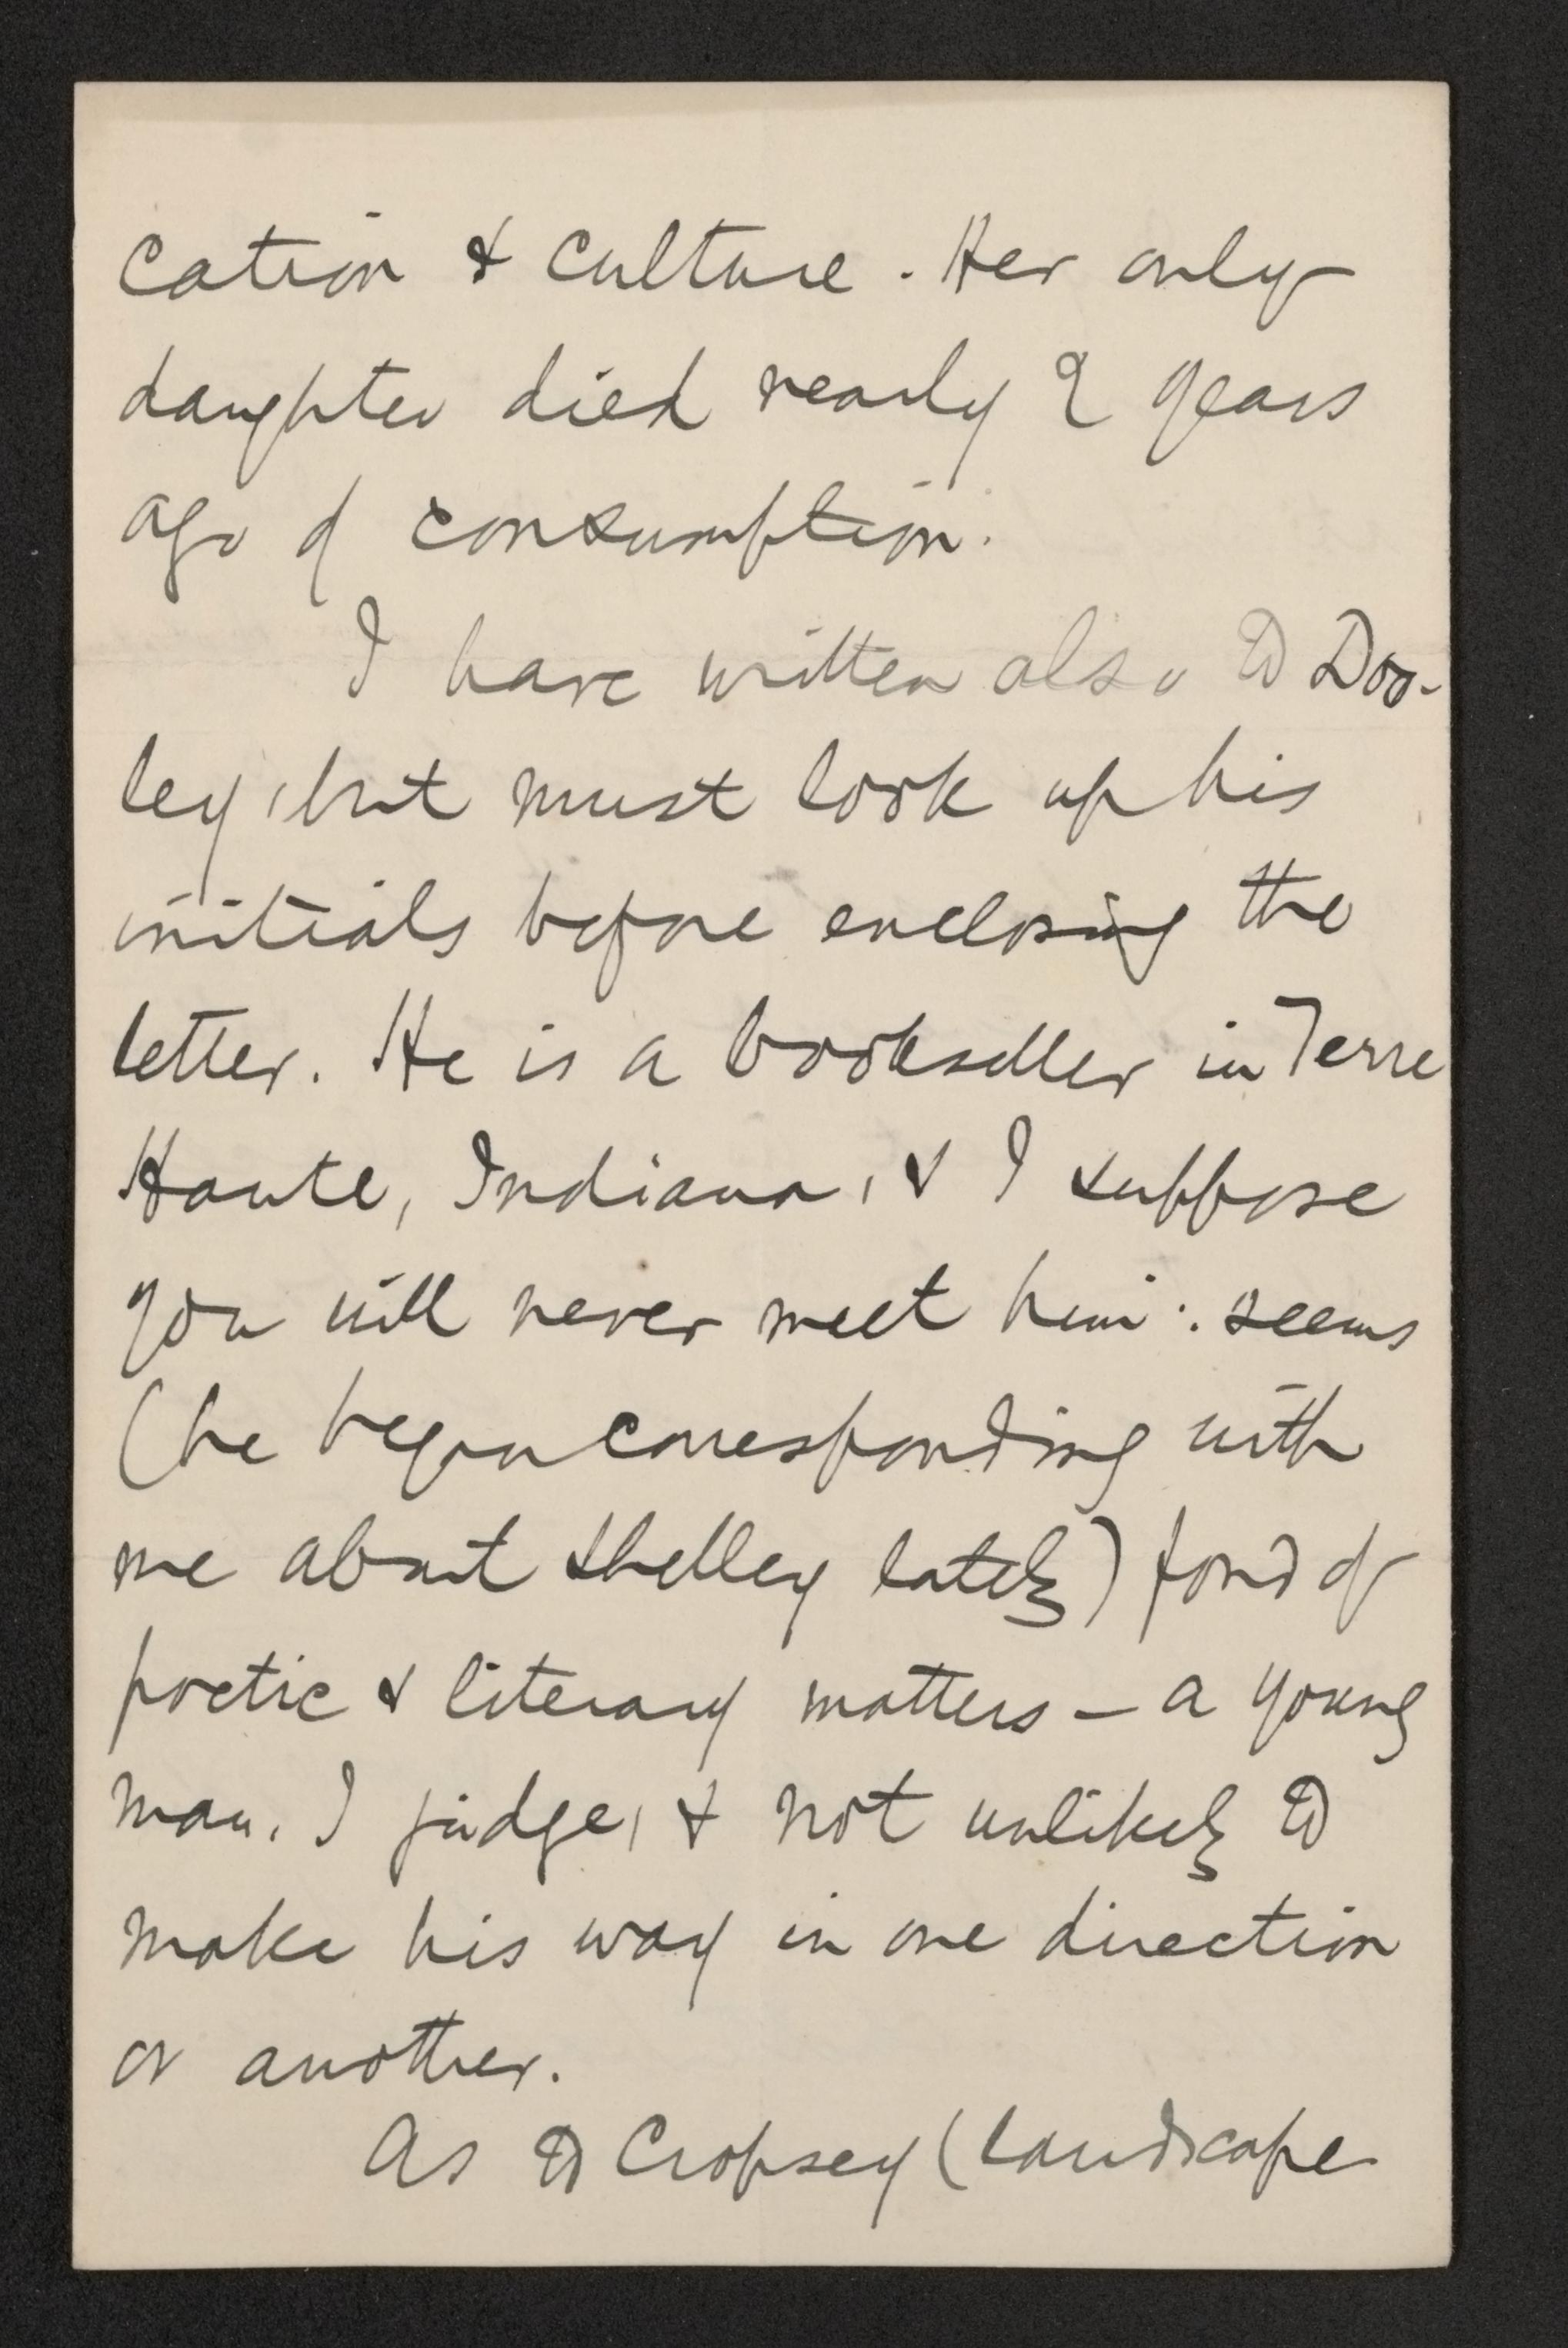 cation & culture. Her only
daughter died nearly 2 years
ago of consumption.
I have written also to Doo-
ley, but must look up his
initials before enclosing the
letter. He is a bookseller in Terre
Haute, Indiana, & I suppose
you will never meet him: seems
(he began corresponding with
me about Shelley lately) fond of
poetic & literary matters – a young
man, I judge, & not unlikely to
make his way in one direction
or another.
As to Cropsey (landscape